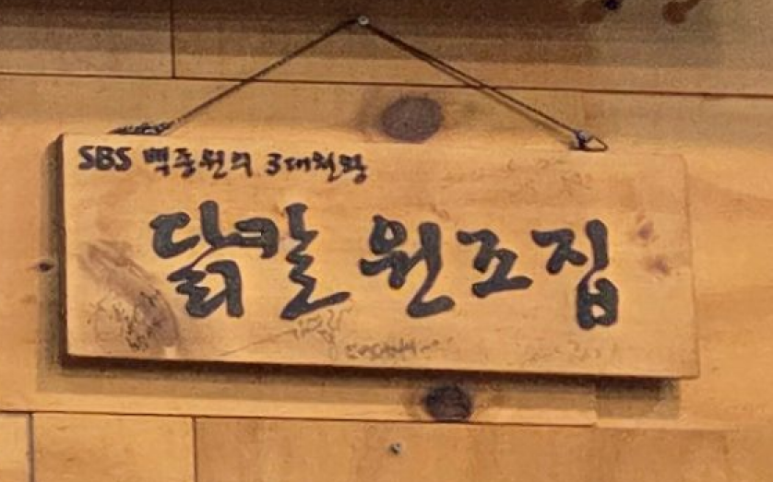 SBS 백종원의 3대천왕
닭칼 원조집